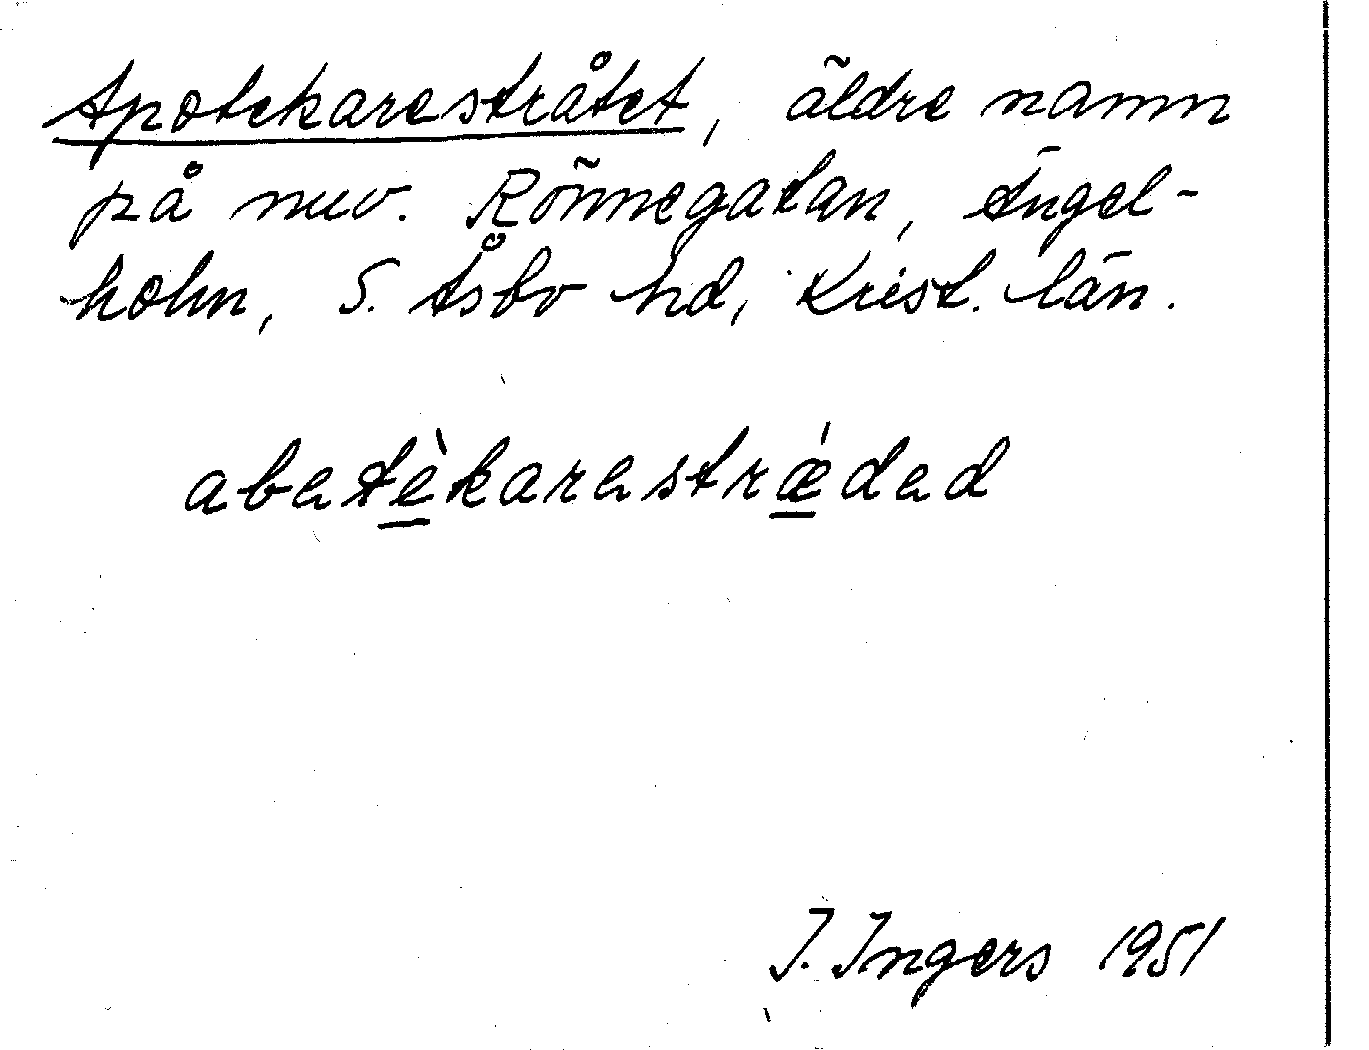 Apotekarestråtet, äldre namn
på nuv. Rönnegatan, Ängel-
holm, S. Åsbo hd, Krist. län.
abetèkarestrǽded
I. Ingers 1951